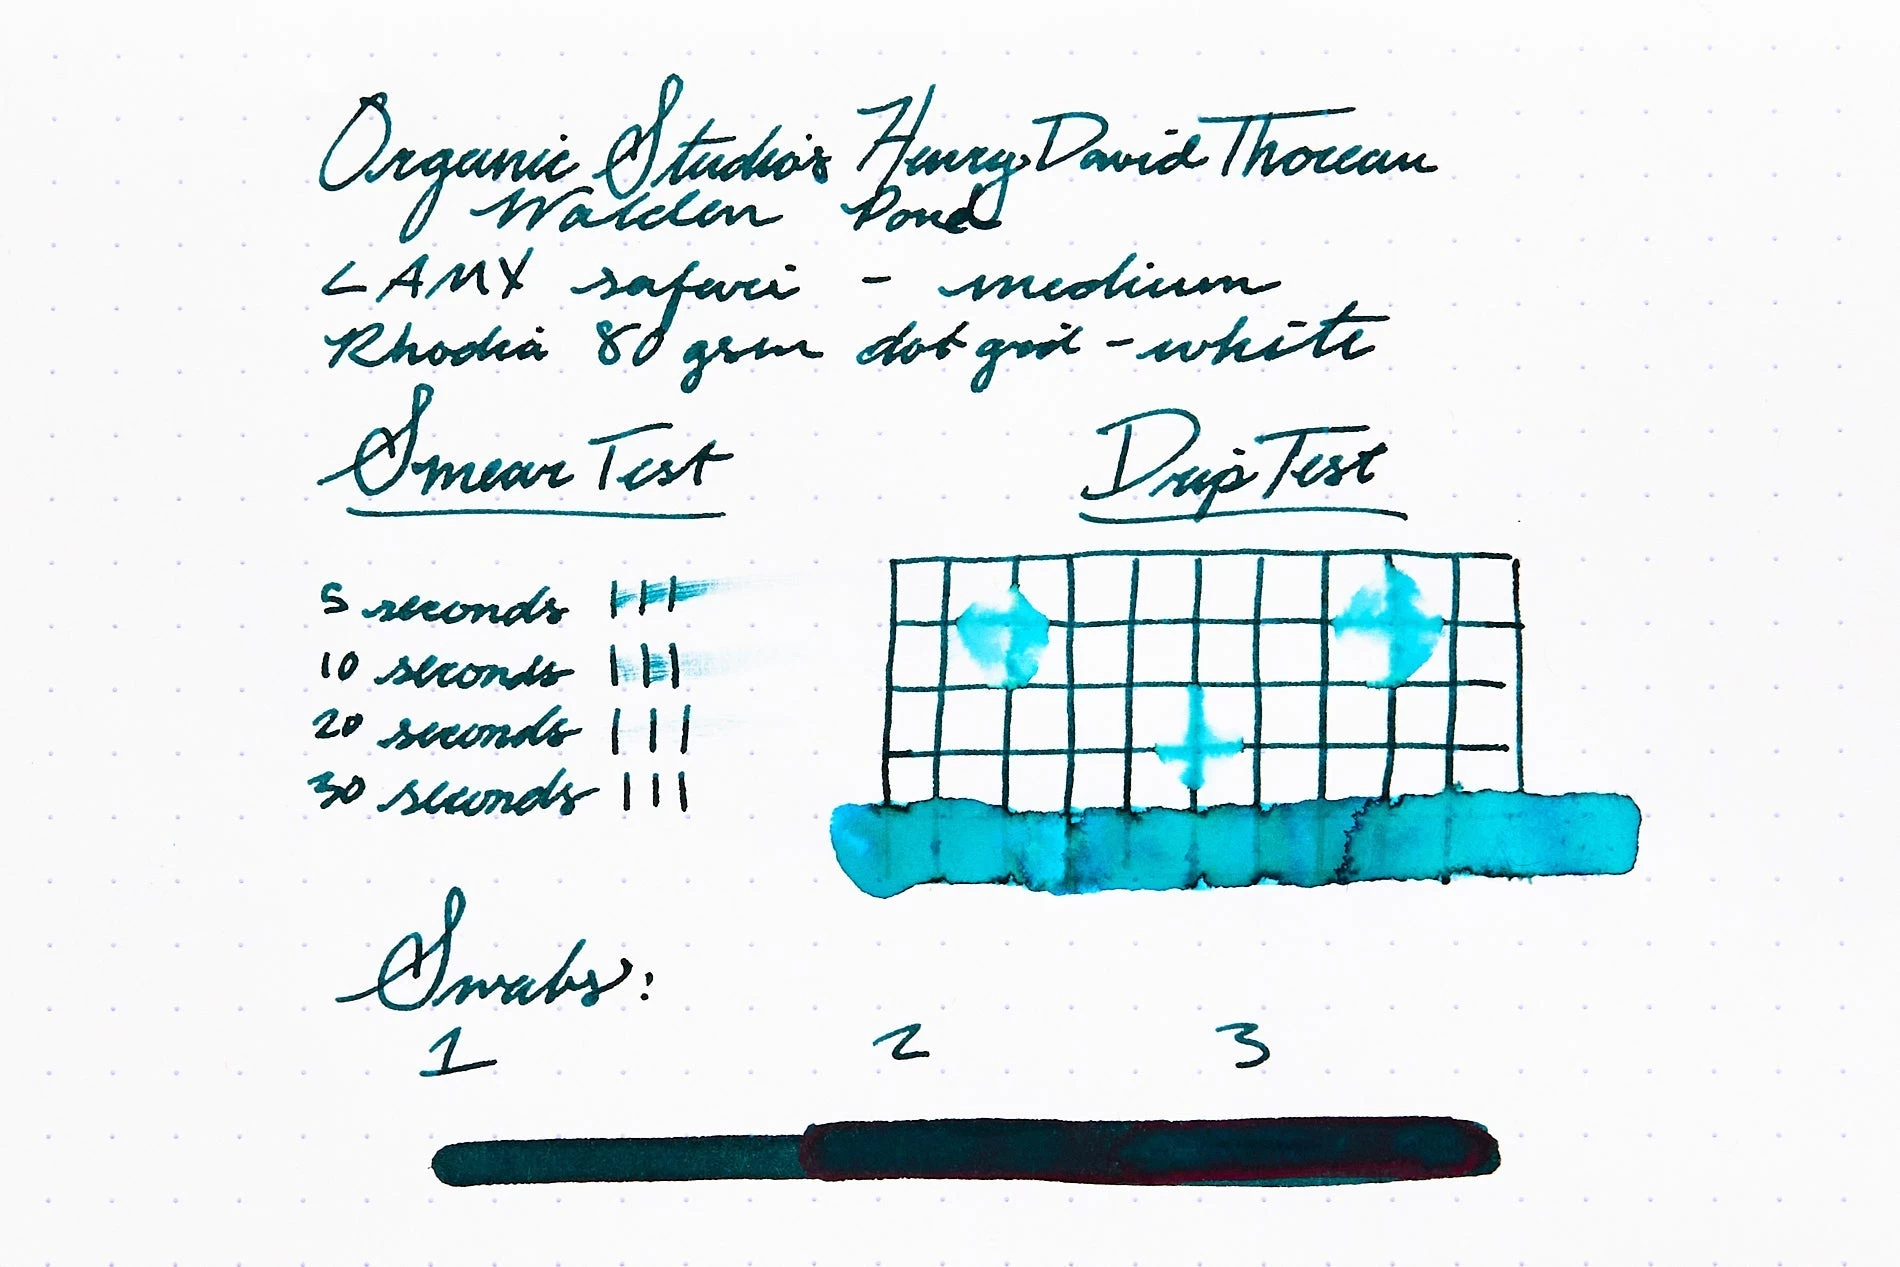 Organic Studio's Henry David Thoreau
Walden Pond
LAMY safari - medium
Rhodia 80 gsm dot grid - white
Smear Test
Drip Test
5 seconds
10 seconds
20 seconds
30 seconds
Swabs:
1 2 3